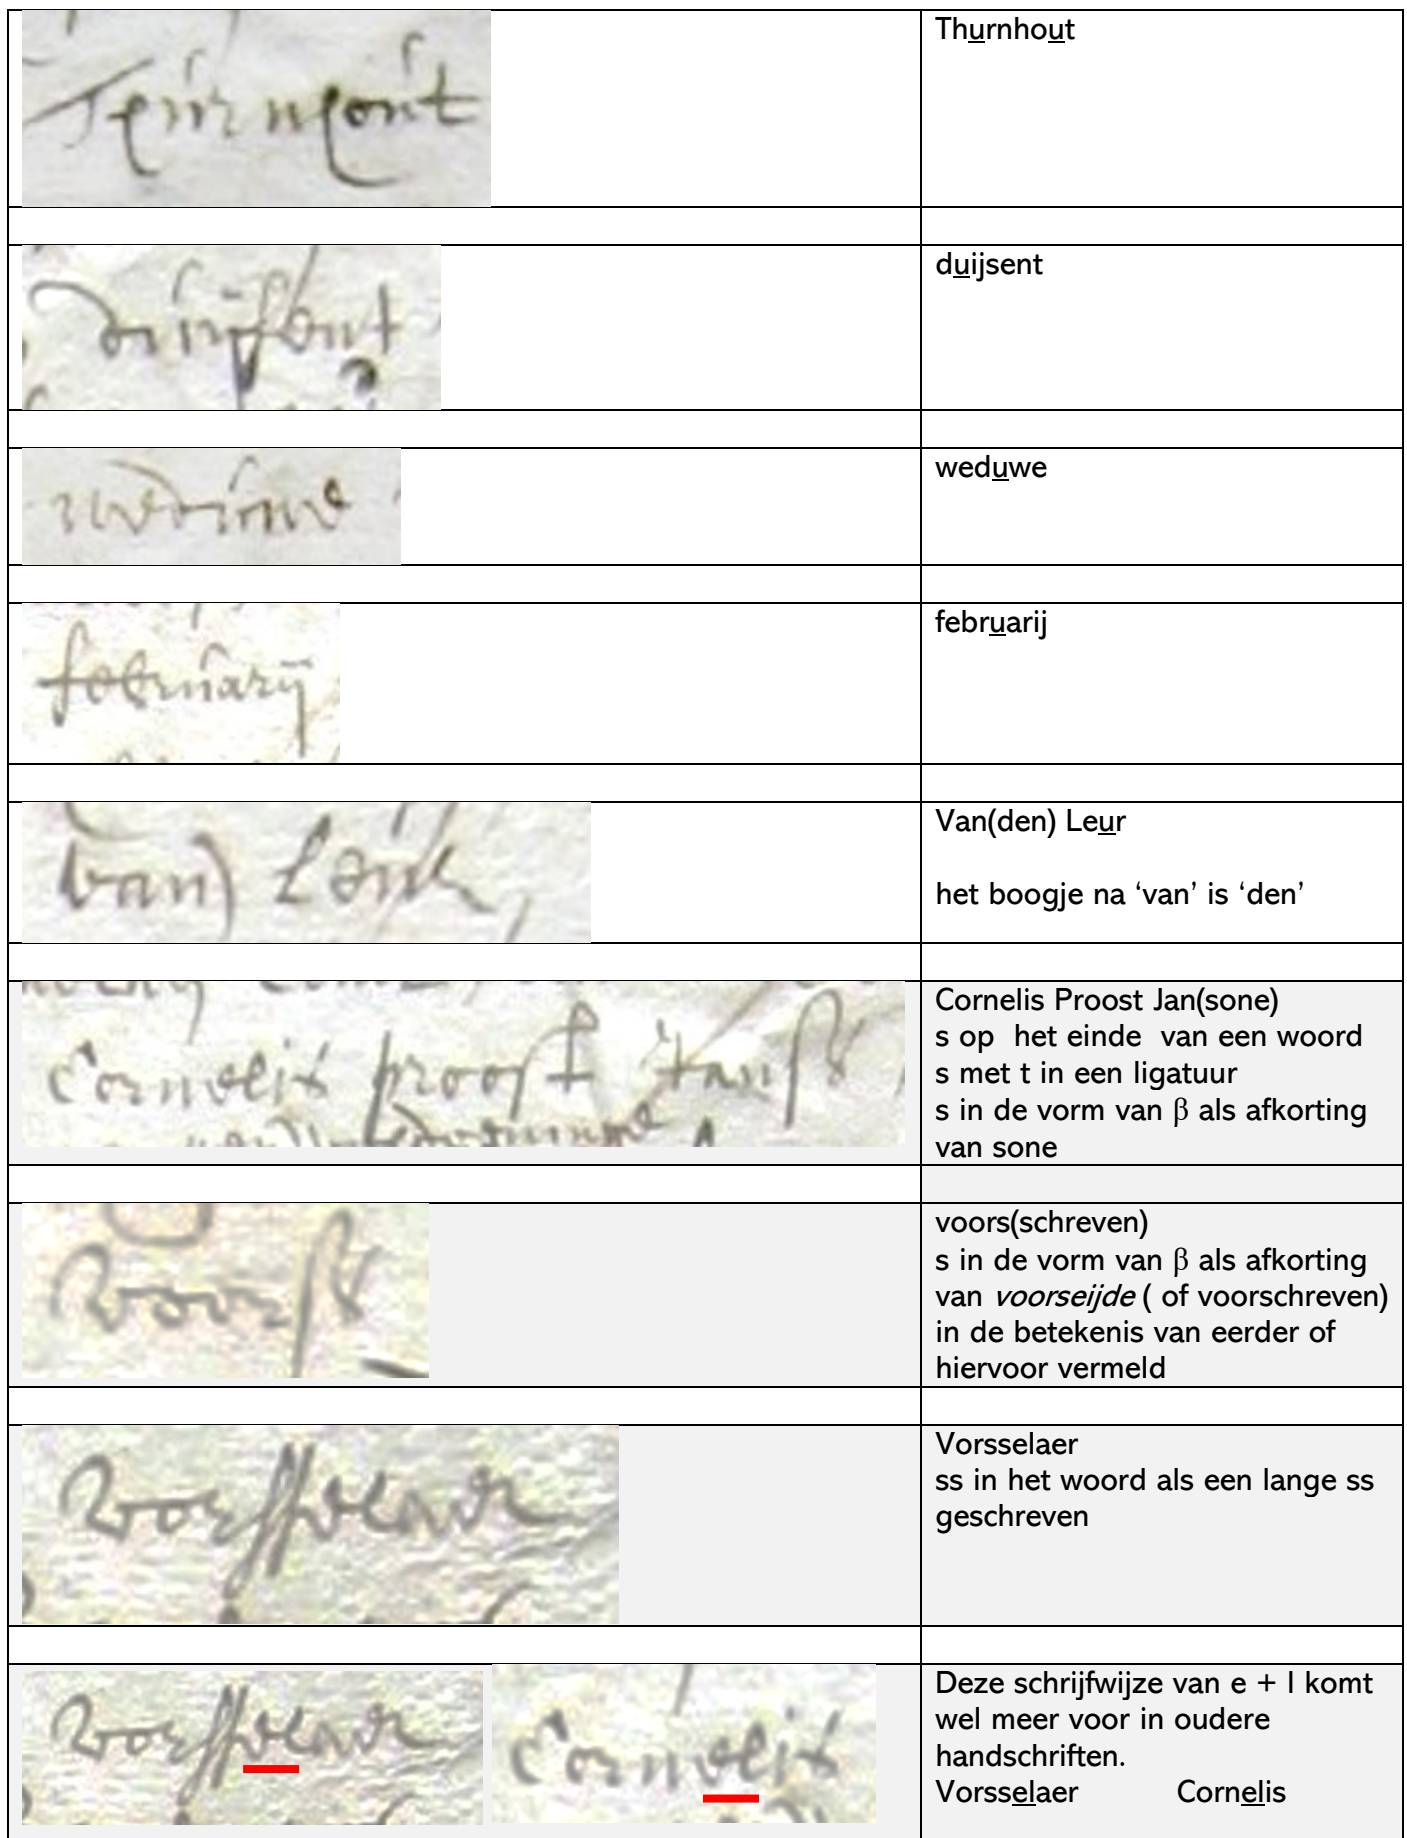 Thurnhout
Thurnhout
duijsent
duijsent
weduwe
weduwe
februarij
februarij
van) Leur,
Van(den) Leur
het boogje na ‘van’ is ‘den’
Cornelis proost Janß
Cornelis Proost Jan(sone)
s op het einde van een woord
s met t in een ligatuur
s in de vorm van β als afkorting
van sone
voorß
voors(schreven)
s in de vorm van β als afkorting
van voorseijde ( of voorschreven)
in de betekenis van eerder of
hiervoor vermeld
Vorsselaer
Vorsselaer
ss in het woord als een lange ss
geschreven
Vorsselaer Cornelis
Deze schrijfwijze van e + l komt
wel meer voor in oudere
handschriften.
Vorsselaer Cornelis